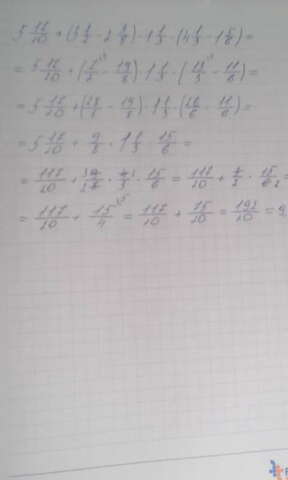 5 17/20 + (3 1/2 - 2 3/8) · 1 1/3 · (4 1/3 - 1 5/6) =
= 5 17/20 + (7/2 - 19/8) · 1 1/3 · (13/3 - 11/6) =
= 5 17/20 + (28/8 - 19/8) · 1 1/3 · (26/6 - 11/6) =
= 5 17/20 + 9/8 · 1 1/3 · 15/6 =
= 117/20 + 9/8 · 4/3 · 15/6 = 117/20 + 3/2 · 15/6 =
= 117/20 + 15/4 = 117/20 + 75/20 = 192/20 = 9